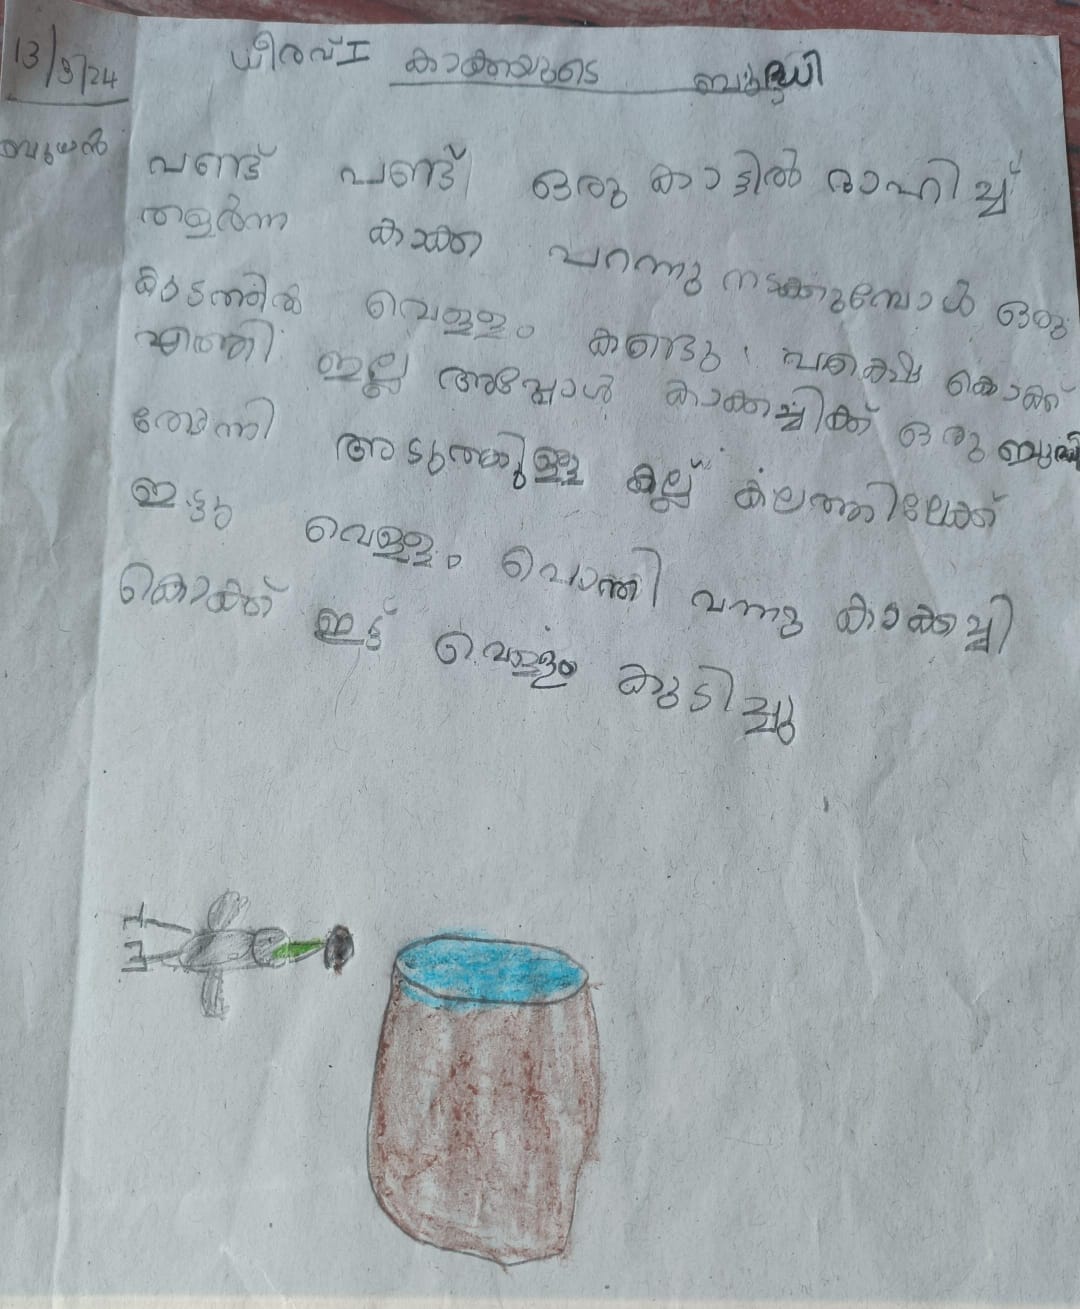 13/3/24
ധീരവ് I കാക്കയുടെ ബുദ്ധി
ബുധൻ
പണ്ട് പണ്ട് ഒരു കാട്ടിൽ ദാഹിച്ച്
തളർന്ന കാക്ക പറന്നു നടക്കുമ്പോൾ ഒരു
കുടത്തിൽ വെള്ളം കണ്ടു. പക്ഷെ കൊക്ക്
എത്തി ഇല്ല അപ്പോൾ കാക്കച്ചിക്ക് ഒരു ബുദ്ധി
തോന്നി അടുത്തുള്ള കല്ല് കലത്തിലേക്ക്
ഇട്ടു വെള്ളം പൊന്തി വന്നു കാക്കച്ചി
കൊക്ക് ഇട്ട് വെള്ളം കുടിച്ചു